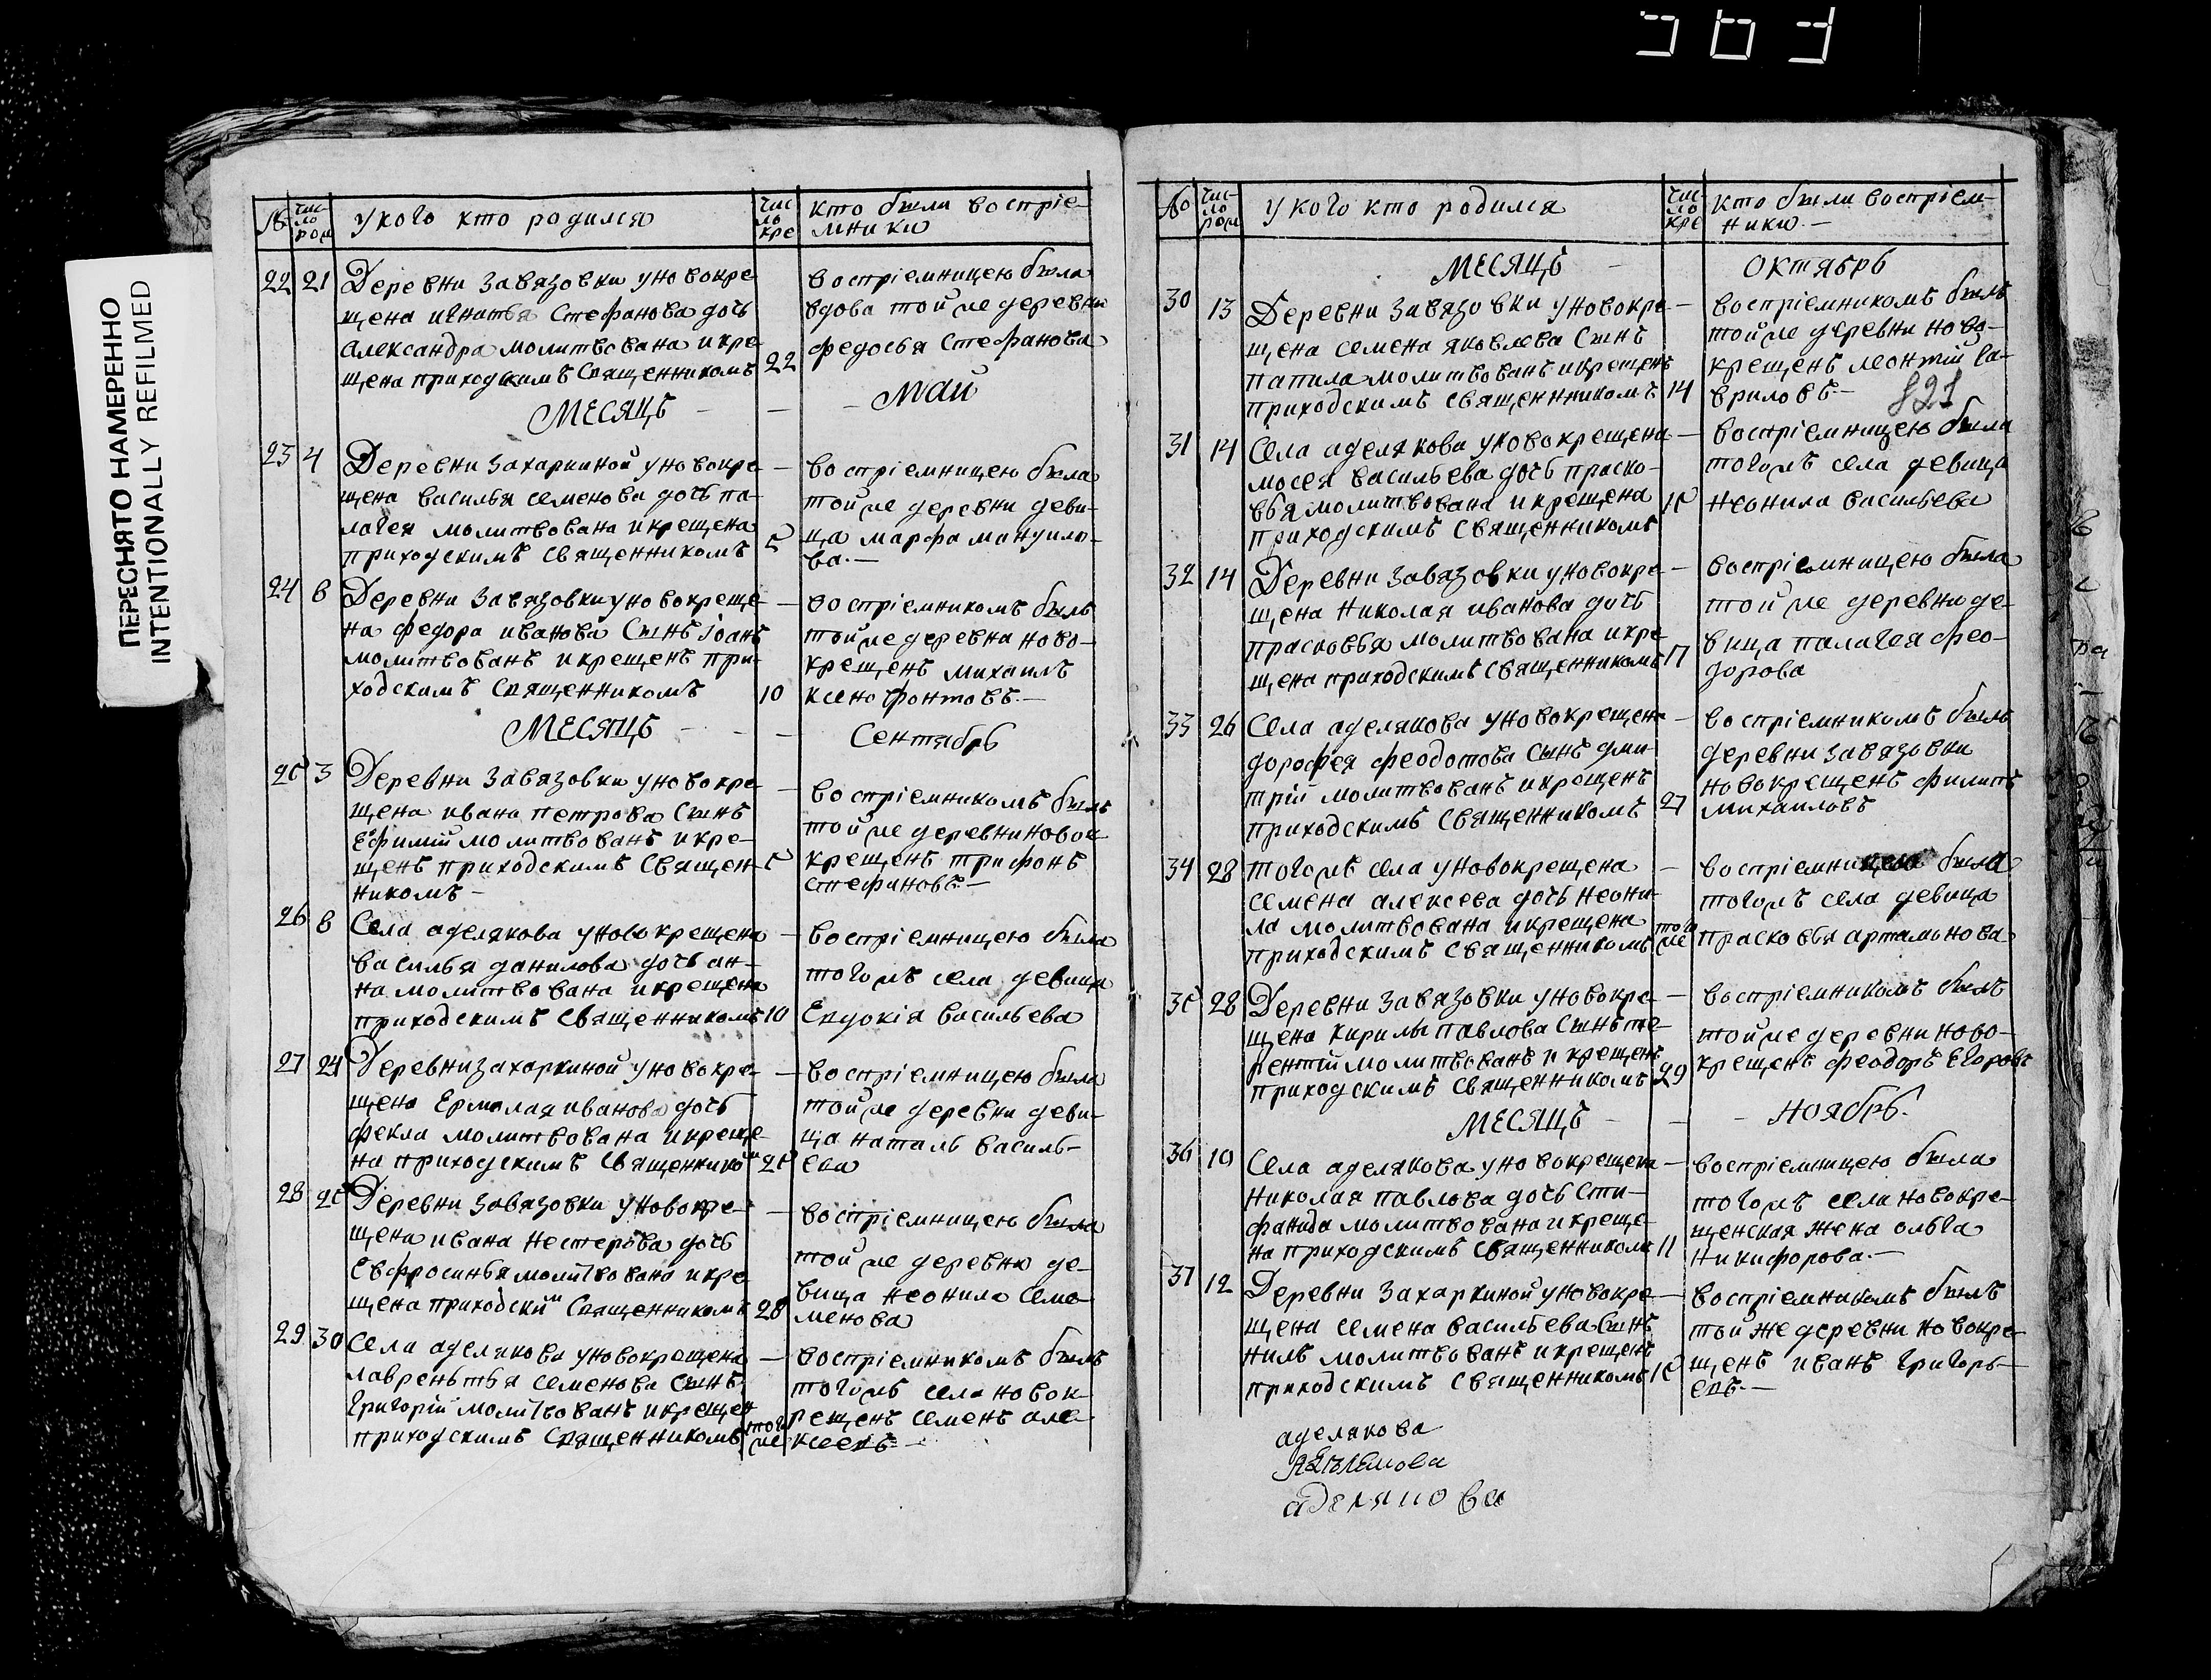 ПЕРЕСНЯТО НАМЕРЕННО
INTENTIONALLY REFILMED
№ чис-ло рож
у кого кто родился
чис ло кре
кто были воспрiе-
мники
22 21 Деревни Завязовки уновокре
щена игнатья Стефанова дочь
александра молитвована икре
щена приходскимъ Священникомъ 22
воспрiемницею была
вдова тойже деревни
федосья Стефанова
МЕСЯЦЪ — — Май
23 4 Деревни Захаркиной уновокре —
щена василья семенова дочь па-
лагея молитвована икрещена
приходскимъ священникомъ 5
воспрiемницею была
тойже деревни деви-
ца марфа мануило-
ва.—
24 8 Деревни Завязовки уновокреще —
на федора иванова Сынъ iоанъ
молитвованъ икрещенъ при-
ходскимъ Священникомъ 10
воспрiемникомъ былъ
тойже деревни ново-
крещенъ михаилъ
ксенофонтовъ.—
МЕСЯЦЪ — — Сентябрь
25 3 Деревни Завязовки уновокре —
щена ивана петрова Сынъ
Ефимiй молитвованъ икре-
щенъ приходскимъ Священ- 5
никомъ —
воспрiемникомъ былъ
тойже деревни новок
крещенъ трифонъ
стефановъ.—
26 8 Села аделякова уновокрещена —
василья данилова дочь ан-
на молитвована икрещена
приходскимъ священникомъ 10
воспрiемницею была
тогожъ села девица
Евдокiя васильева
27 24 Деревни Захаркиной уновокре- —
щена Ермолая иванова дочь
фекла молитвована икреще-
на приходскимъ священникомъ 25
воспрiемницею была
тойже деревни деви-
ца наталь василь-
ева
28 25 Деревни Завязовки уновокре- —
щена ивана нестерова дочь
Евфросинья молитвована икре
щена приходскимъ Священникомъ 28
воспрiемницею была
тойже деревни де-
вица неонила Семе
менова
29 30 Села аделякова уновокрещена —
лаврентья семенова сынъ
григорiй молитвованъ икрещен
приходскимъ священникомъ того же
воспрiемникомъ былъ
тогожъ села новок
рещенъ семенъ але
ксеевъ —
№ чис-ло рож
у кого кто родился
чис-ло кре
кто были воспрiем-
ники.—
МЕСЯЦЪ — ОКТЯБРЬ
30 13 Деревни Завязовки уновокре —
щена семена яковлева Сынъ
папила молитвованъ икрещенъ
приходскимъ священникомъ 14
воспрiемникомъ былъ
тойже деревни ново-
крещенъ леонтiй га-
вриловъ.—
821
31 14 Села аделякова уновокрещена —
мосея васильева дочь праско-
вья молитвована икрещена 15
приходскимъ священникомъ
воспрiемницею была
тогожъ села девица
неонила васильева
32 14 Деревни Завязовки уновокре —
щена Николая иванова дочь
прасковья молитвована икре
щена приходскимъ священникомъ 17
воспрiемницею была
тойже деревни де-
вица палагея фео-
дорова
33 26 Села аделякова уновокрещена —
дорофея феодотова Сынъ дми-
трiй молитвованъ икрещенъ
приходскимъ священникомъ 27
воспрiемникомъ былъ
деревни завязовки
новокрещенъ филипъ
михаиловъ
34 28 тогожъ села уновокрещена —
семена алексева дочь неони-
ла молитвована икрещена
приходскимъ священникомъ того же
воспрiемницею была
тогожъ села девица
прасковья артамонова
35 28 Деревни Завязовки уновокре —
щена кирилы павлова Сынъ те-
рентiй молитвованъ и крещенъ
приходскимъ священникомъ 29
воспрiемникомъ былъ
тойже деревни ново-
крещенъ феодоръ Егоровъ
МЕСЯЦЪ — — НОЯбрь.
36 10 Села аделякова уновокрещена —
николая павлова дочь сти-
фанида молитвована икреще-
на приходскимъ священником 11
воспрiемницею была
тогожъ села новокре-
щенская жена ольга
никифорова.—
37 12 Деревни Захаркиной уновокре —
щена семена васильева Сынъ
нилъ молитвованъ икрещенъ
приходскимъ священникомъ 15
воспрiемникомъ былъ
той же деревни новокре
щенъ иванъ григорь-
евъ.—
аделякова
аделякова